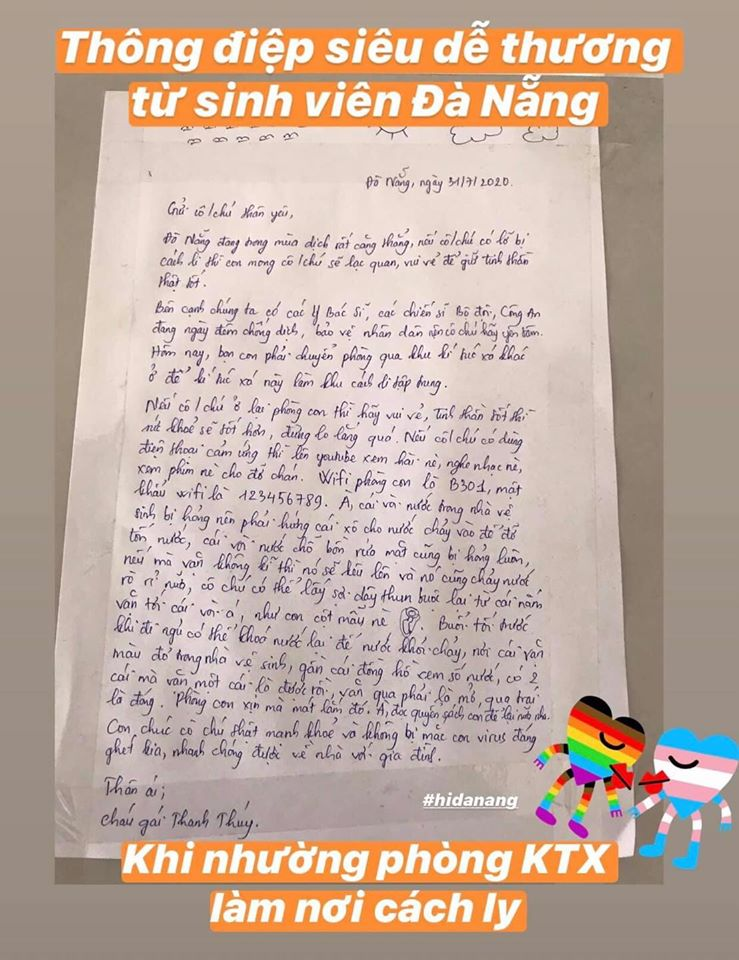 Thông điệp siêu dễ thương
từ sinh viên Đà Nẵng
Đà Nẵng, ngày 31/7/2020.
Gửi cô/chú thân yêu,
Đà Nẵng đang trong mùa dịch rất căng thẳng, nếu cô/chú có lỡ bị
cách li thì con mong cô/chú sẽ lạc quan, vui vẻ để giữ tinh thần
thật tốt.
Bên cạnh chúng ta có các Y Bác Sĩ, các chiến sĩ Bộ đội, Công An
đang ngày đêm chống dịch, bảo vệ nhân dân nên cô chú hãy yên tâm.
Hôm nay, bọn con phải chuyển phòng qua khu kí túc xá khác
ở để kí túc xá này làm khu cách li tập trung.
Nếu cô/chú ở lại phòng con thì hãy vui vẻ, tinh thần tốt thì
sức khoẻ sẽ tốt hơn, đừng lo lắng quá. Nếu cô/chú có dùng
điện thoại cảm ứng thì lên youtube xem hài nè, nghe nhạc nè,
xem phim nè cho đỡ chán. Wifi phòng con là B301, mật
khẩu wifi là 123456789. À, cái vòi nước trong nhà vệ
sinh bị hỏng nên phải hứng cái xô cho nước chảy vào để đỡ
tốn nước, cái vòi nước chỗ bồn rửa mặt cũng bị hỏng luôn,
nếu mà vặn không kĩ thì nó sẽ kêu lên và nó cũng chảy nước
rò rỉ nữa, cô chú có thể lấy sợi dây thun buộc lại từ cái nắm
vặn tới cái vòi á, như con cột mấy nè. Buổi tối trước
khi đi ngủ có thể khoá nước lại để nước khỏi chảy, nơi cái vặn
màu đỏ trong nhà vệ sinh, gần cái đồng hồ xem số nước, có 2
cái mà vặn một cái là được rồi, vặn qua phải là mở, qua trái
là đóng. Phòng con xịn mà mát lắm đó. À, đọc quyển sách con để lại nữa nha.
Con chúc cô chú thật mạnh khoẻ và không bị mắc con virus đáng
ghét kia, nhanh chóng được về nhà với gia đình.
Thân ái;
cháu gái Thanh Thuý.
#hidanang
Khi nhường phòng KTX
làm nơi cách ly